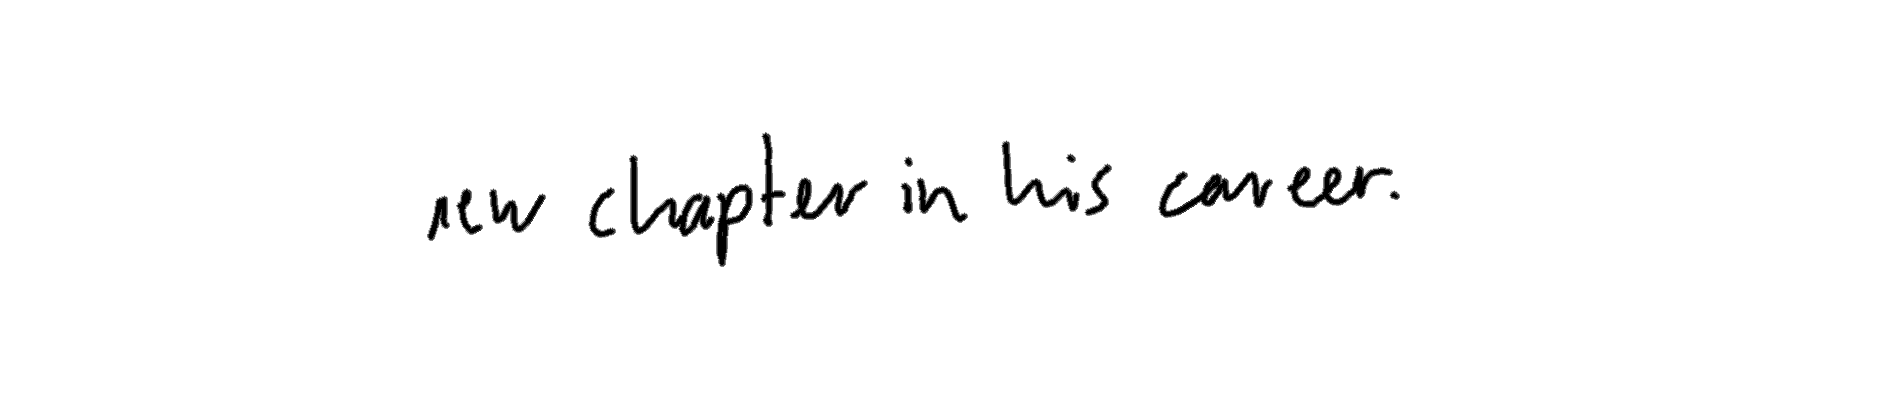 new chapter in his career.